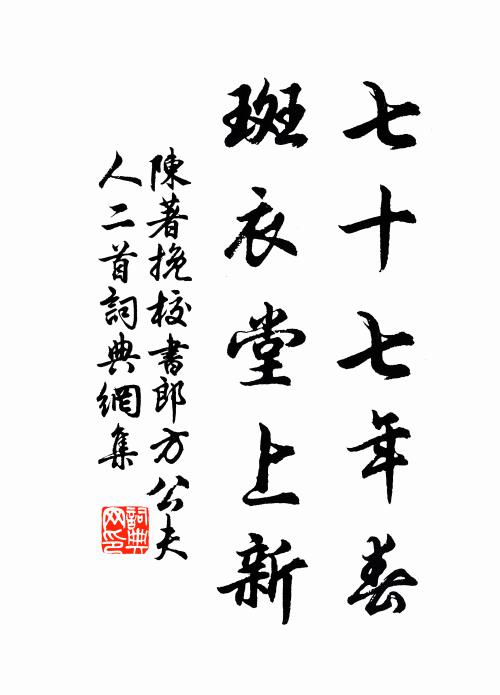 七十七年春
斑衣堂上新
陳著挽校書郎方公夫
人二首詞典網集
詞典
网印